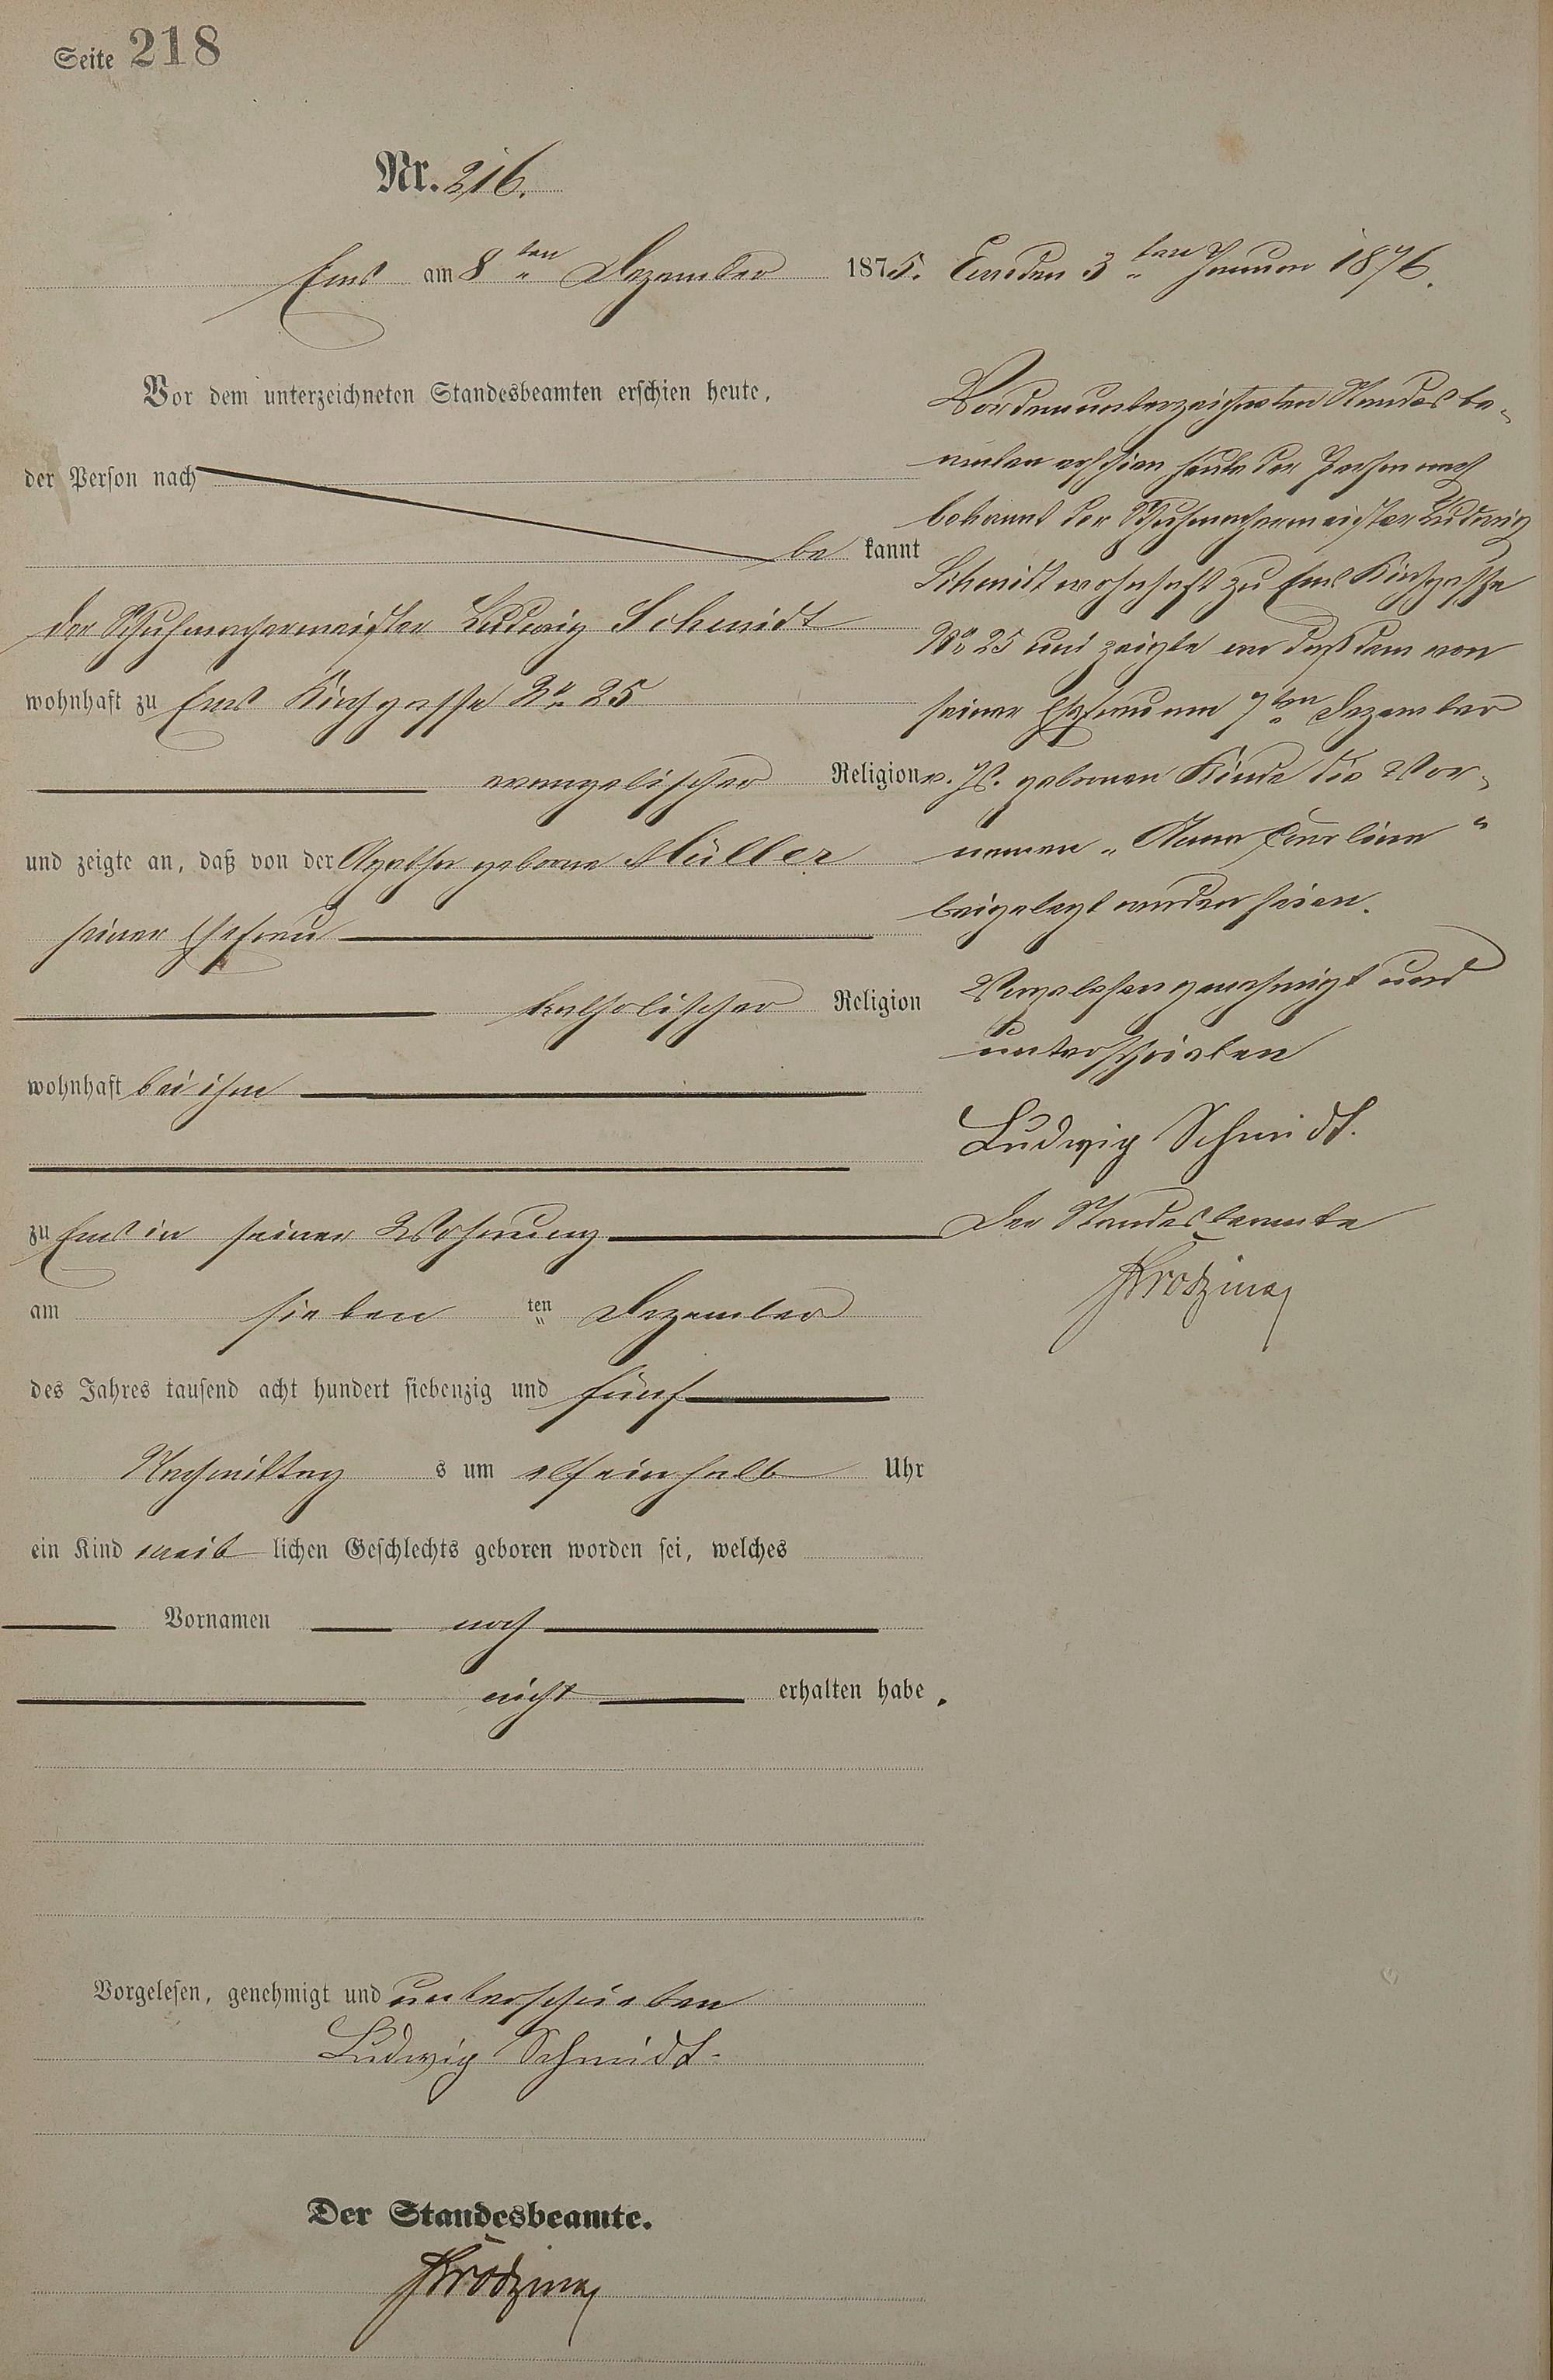 Seite 218
Nr. 216.
Ems am 8ten Dezember 1875.
Vor dem unterzeichneten Standesbeamten erschien heute,
der Person nach
be kannt
der Schuhmachermeister Ludwig Schmidt
wohnhaft zu Ems Kirchgasse No 25
evangelischer Religion
und zeigte an, daß von der Agatha geborne Müller
seiner Ehefrau
katholischer Religion
wohnhaft bei ihm
zu Ems in seiner Wohnung
am sieben ten Dezember
des Jahres tausend acht hundert siebenzig und fünf
Nachmittag s um elfeinhalb Uhr
ein Kind weib lichen Geschlechts geboren worden sei, welches
Vornamen noch
nicht erhalten habe.
Vorgelesen, genehmigt und unterschrieben
Ludwig Schmidt.
Der Standesbeamte.
Ems den 3ten Januar 1876.
Vor dem unterzeichneten Standesbe-
amten erschien heute der Person nach
bekannt der Schuhmachermeister Ludwig
Schmidt wohnhaft zu Ems Kirchgasse
No 25 und zeigte an daß dem von
seiner Ehefrau am 7ten Dezember
v. Js. gebornen Kinde die Vor-
namen "Anna Caroline"
beigelegt worden seien.
Vorgelesen genehmigt und
unterschrieben
Ludwig Schmidt.
Der Standesbeamte